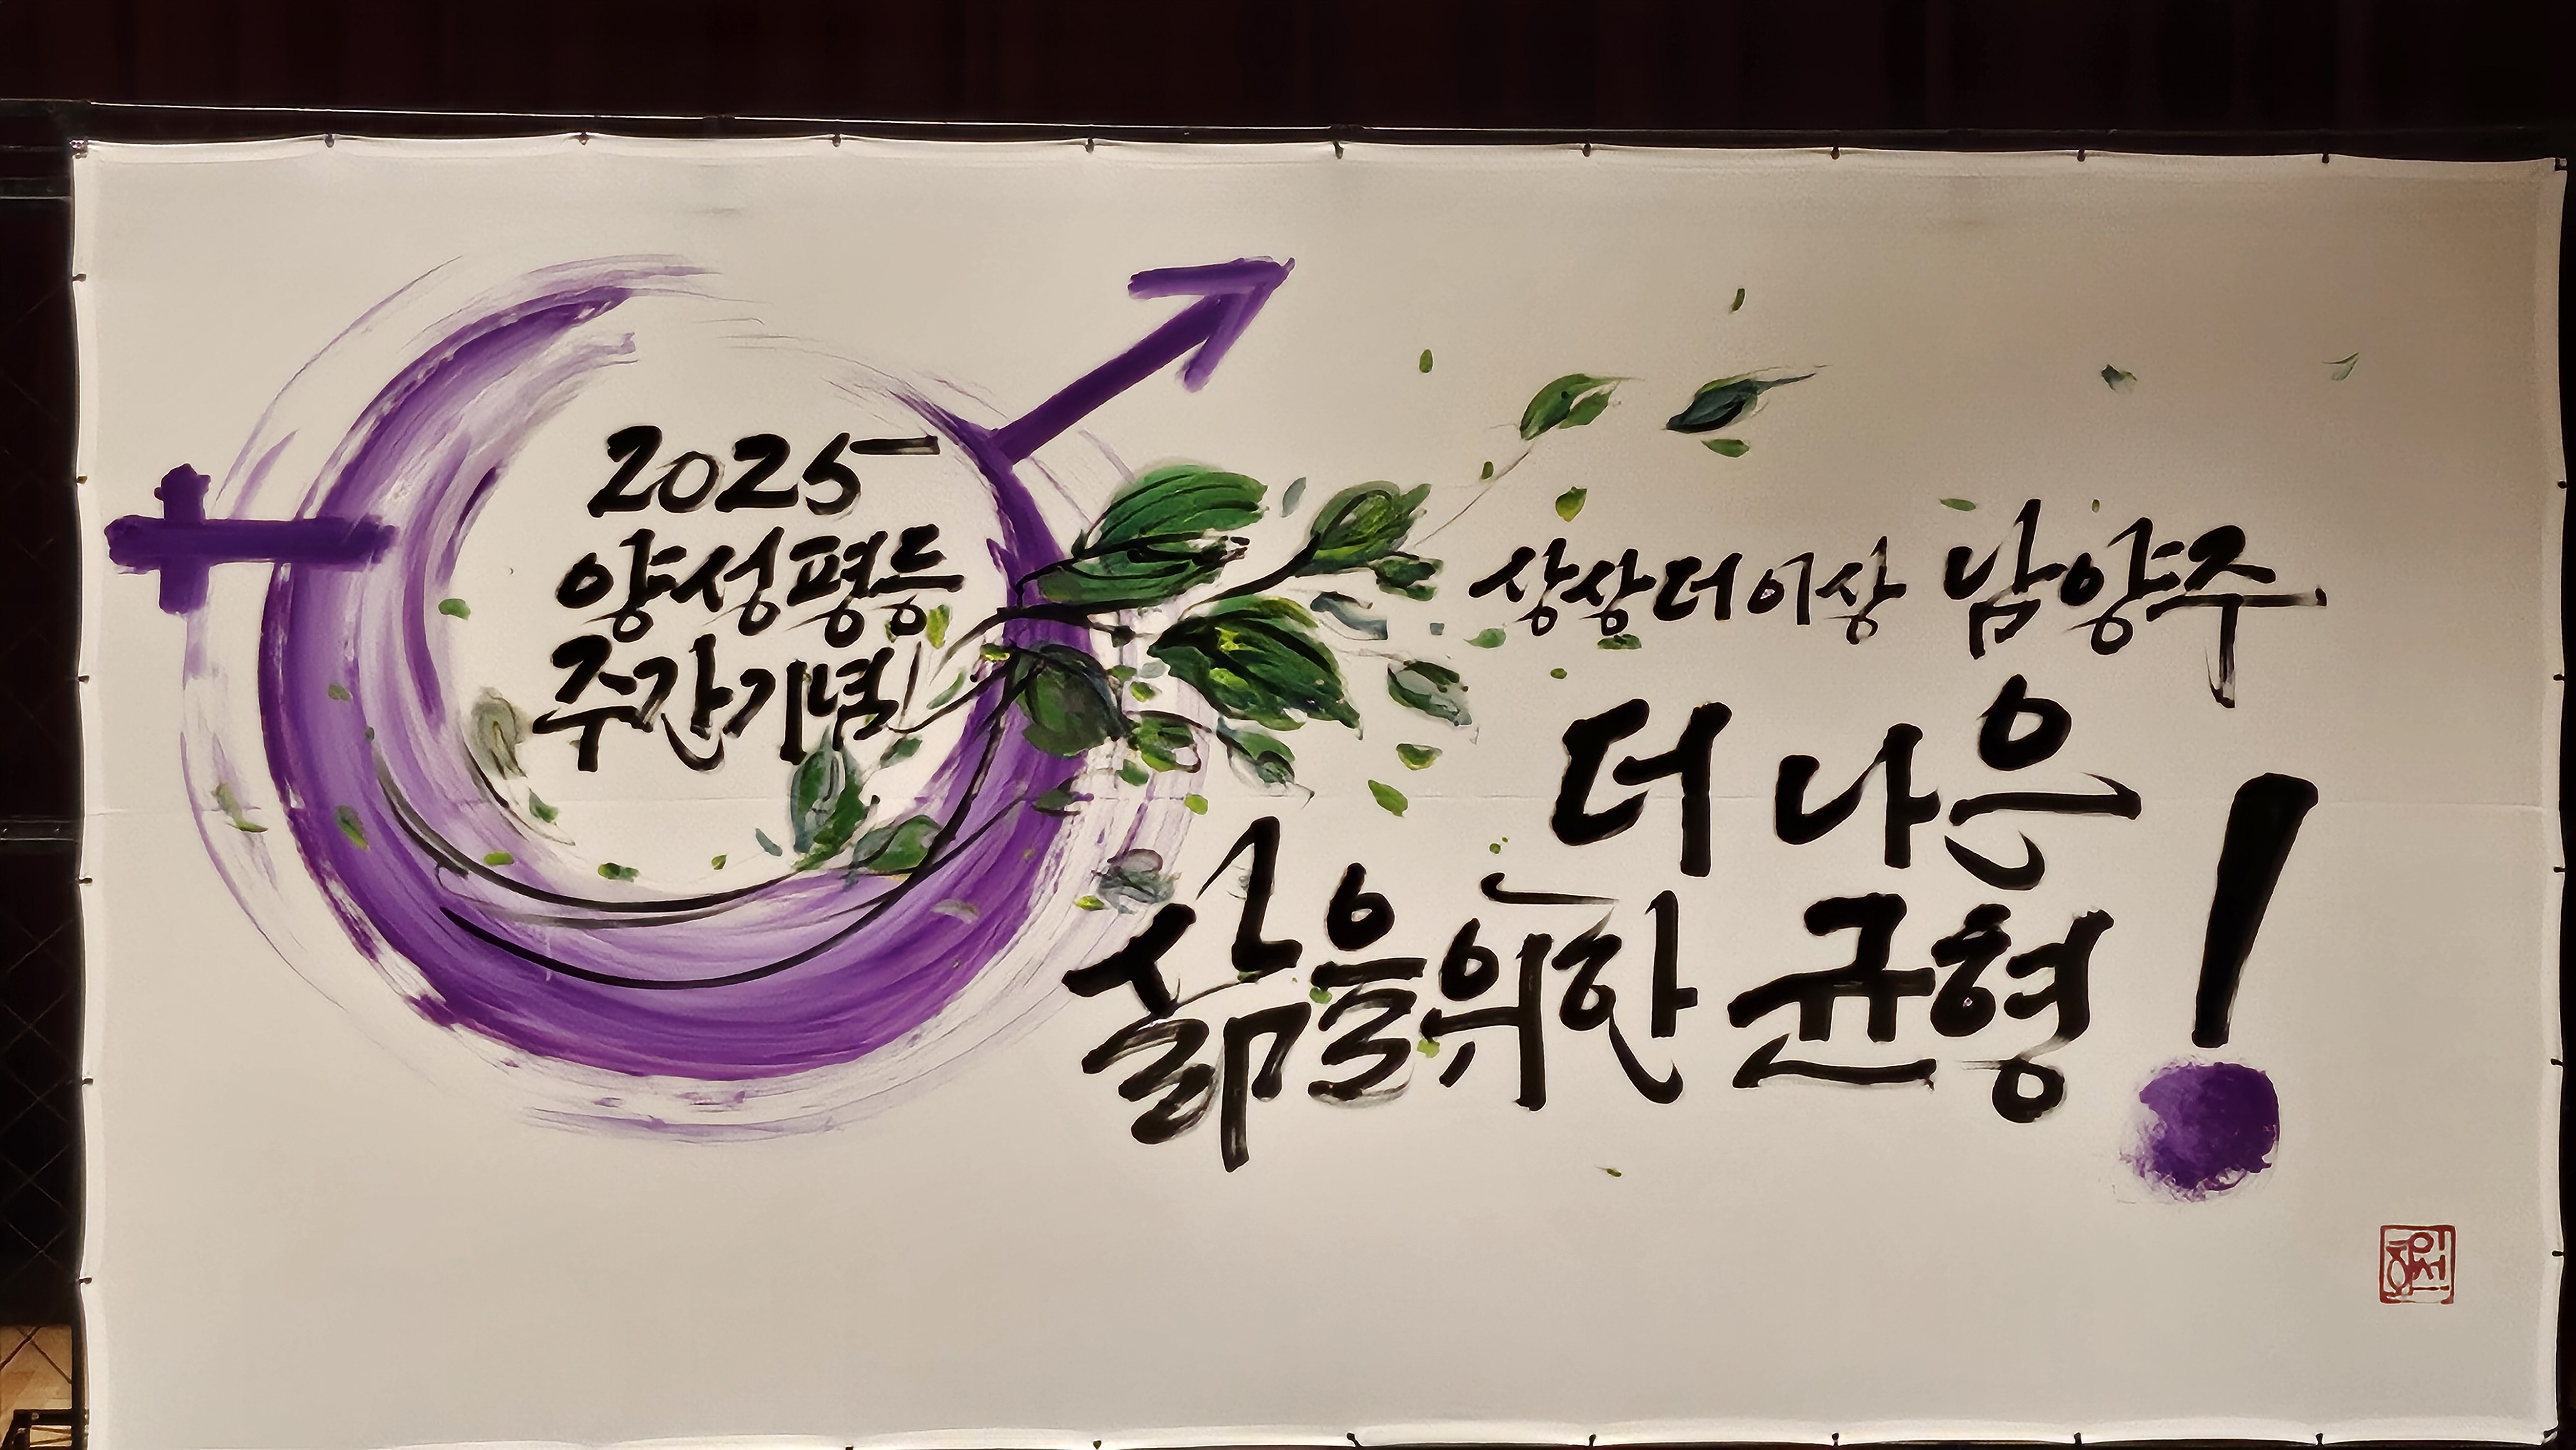 2025
양성평등
주간기념
상상더이상 남양주
더 나은
삶을위한 균형!